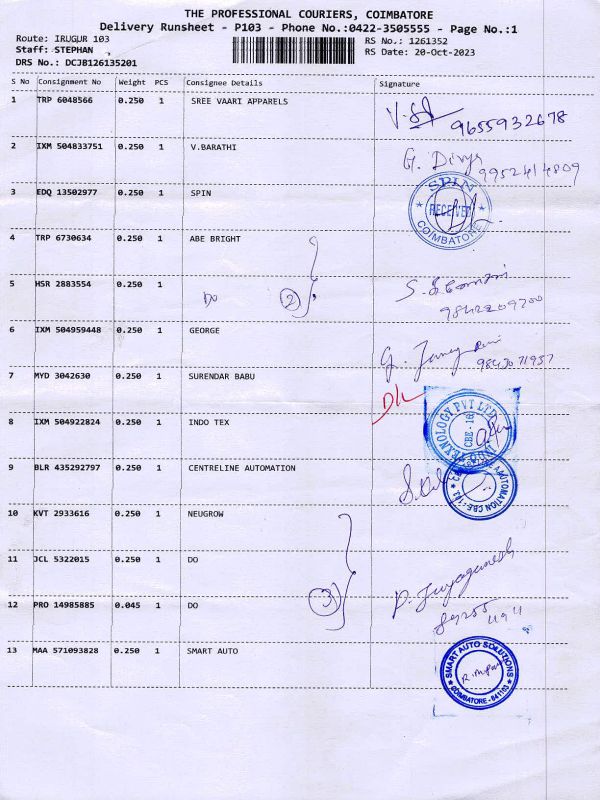 THE PROFESSIONAL COURIERS, COIMBATORE
Delivery Runsheet - P103 - Phone No.:0422-3505555 - Page No.:1
Route: IRUGUR 103 RS No.: 1261352
Staff: STEPHAN RS Date: 20-Oct-2023
DRS No.: DCJB126135201
S No Consignment No Weight PCS Consignee Details Signature
1 TRP 6048566 0.250 1 SREE VAARI APPARELS
9655932678
2 IXM 504833751 0.250 1 V.BARATHI G. Divya
9952414809
3 EDQ 13502977 0.250 1 SPIN SPIN
RECEIVED
COIMBATORE
4 TRP 6730634 0.250 1 ABE BRIGHT
5 HSR 2883554 0.250 1 DO 2
9842209700
6 IXM 504959448 0.250 1 GEORGE
9843071937
7 MYD 3042630 0.250 1 SURENDAR BABU D/L
8 IXM 504922824 0.250 1 INDO TEX
CBE-16
9 BLR 435292797 0.250 1 CENTRELINE AUTOMATION
10 KVT 2933616 0.250 1 NEUGROW
11 JCL 5322015 0.250 1 DO
12 PRO 14985885 0.045 1 DO 3 P. Jayaganesh
13 MAA 571093828 0.250 1 SMART AUTO SMART AUTO SOLUTIONS
COIMBATORE - 641103